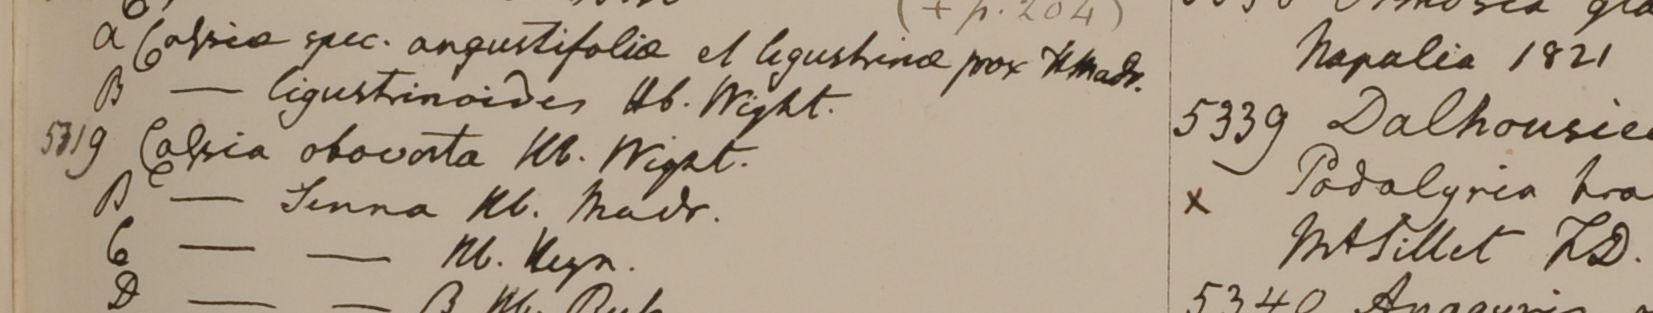 (+ p. 204)
a Cassiæ spec. angustifoliæ et ligustrinæ prox H Madr.
B — ligustrinoides Hb. Wight.
5319 Cassia obovata Hb. Wight.
B — Senna Hb. Madr.
C — — Hb. Heyn.
D — — B Hb.
Napalia 1821
5339 Dalhousiea
Podalyria
x Mt Sillet FD.
5340 Anagyris